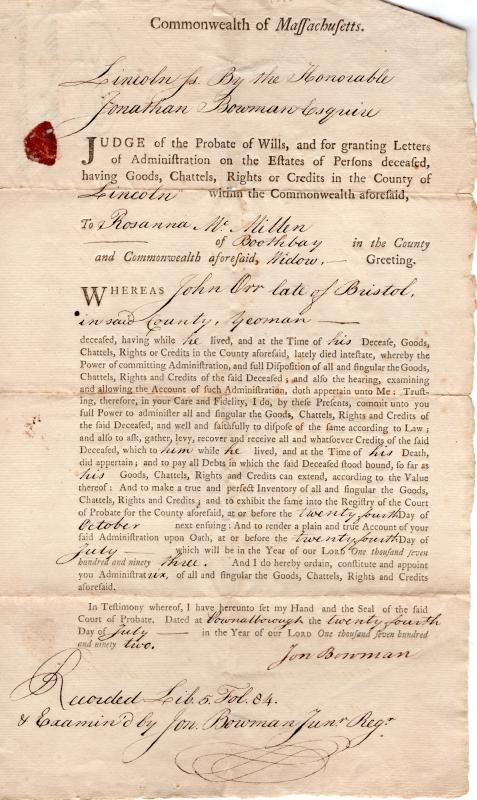 Commonwealth of Maſſachuſetts.
Lincoln ſs. By the Honorable
Jonathan Bowman Esquire
JUDGE of the Probate of Wills, and for granting Letters
of Adminiſtration on the Eſtates of Perſons deceaſed,
having Goods, Chattels, Rights or Credits in the County of
Lincoln within the Commonwealth aforeſaid,
To Rosanna Mc Millen
of Boothbay in the County
and Commonwealth aforeſaid, Widow, — Greeting.
WHEREAS John Orr late of Bristol,
in said County, Yeoman —
deceaſed, having while he lived, and at the Time of his Deceaſe, Goods,
Chattels, Rights or Credits in the County aforeſaid, lately died inteſtate, whereby the
Power of committing Adminiſtration, and full Diſpoſition of all and ſingular the Goods,
Chattels, Rights and Credits of the ſaid Deceaſed ; and alſo the hearing, examining
and allowing the Account of ſuch Adminiſtration, doth appertain unto Me : Truſt-
ing, therefore, in your Care and Fidelity, I do, by theſe Preſents, commit unto you
full Power to adminiſter all and ſingular the Goods, Chattels, Rights and Credits of
the ſaid Deceaſed, and well and faithfully to diſpoſe of the ſame according to Law ;
and alſo to aſk, gather, levy, recover and receive all and whatſoever Credits of the ſaid
Deceaſed, which to him while he lived, and at the Time of his Death,
did appertain ; and to pay all Debts in which the ſaid Deceaſed ſtood bound, ſo far as
his Goods, Chattels, Rights and Credits can extend, according to the Value
thereof : And to make a true and perfect Inventory of all and ſingular the Goods,
Chattels, Rights and Credits ; and to exhibit the ſame into the Regiſtry of the Court
of Probate for the County aforeſaid, at or before the twenty fourth Day of
October next enſuing : And to render a plain and true Account of your
ſaid Adminiſtration upon Oath, at or before the twenty fourth Day of
July — which will be in the Year of our LORD One thouſand ſeven
hundred and ninety three. And I do hereby ordain, conſtitute and appoint
you Adminiſtratrix, of all and ſingular the Goods, Chattels, Rights and Credits
aforeſaid.
In Teſtimony whereof, I have hereunto ſet my Hand and the Seal of the ſaid
Court of Probate. Dated at Pownalborough the twenty fourth
Day of July — in the Year of our LORD One thouſand ſeven hundred
and ninety two.
Jon Bowman
Recorded Lib. 5. Fol. 84.
& Examin'd by Jon. Bowman Junr. Regr.